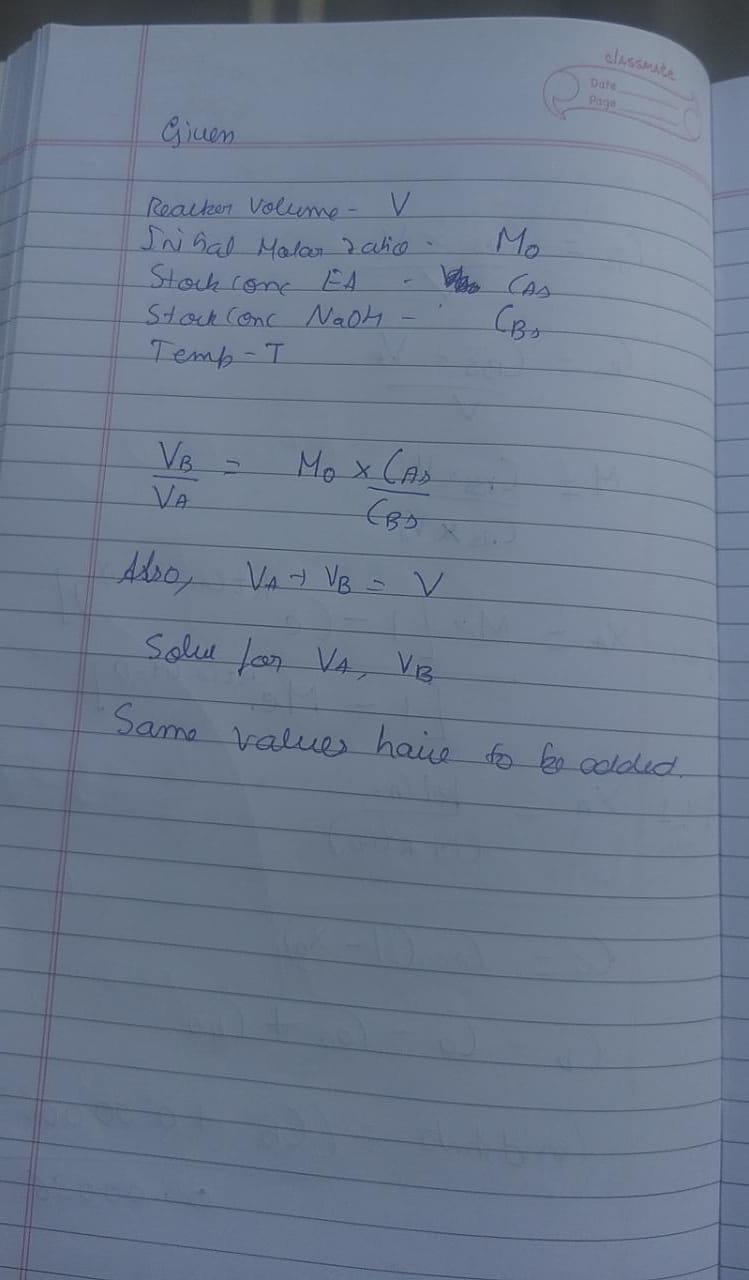 classmate
Date
Page
Given
Reactor Volume - V
Initial Molar ratio - M₀
Stock conc EA - C_As
Stock Conc NaOH - C_Bs
Temp - T
V_B / V_A = M₀ × C_As / C_Bs
Also, V_A + V_B = V
Solve for V_A, V_B
Same values have to be added.